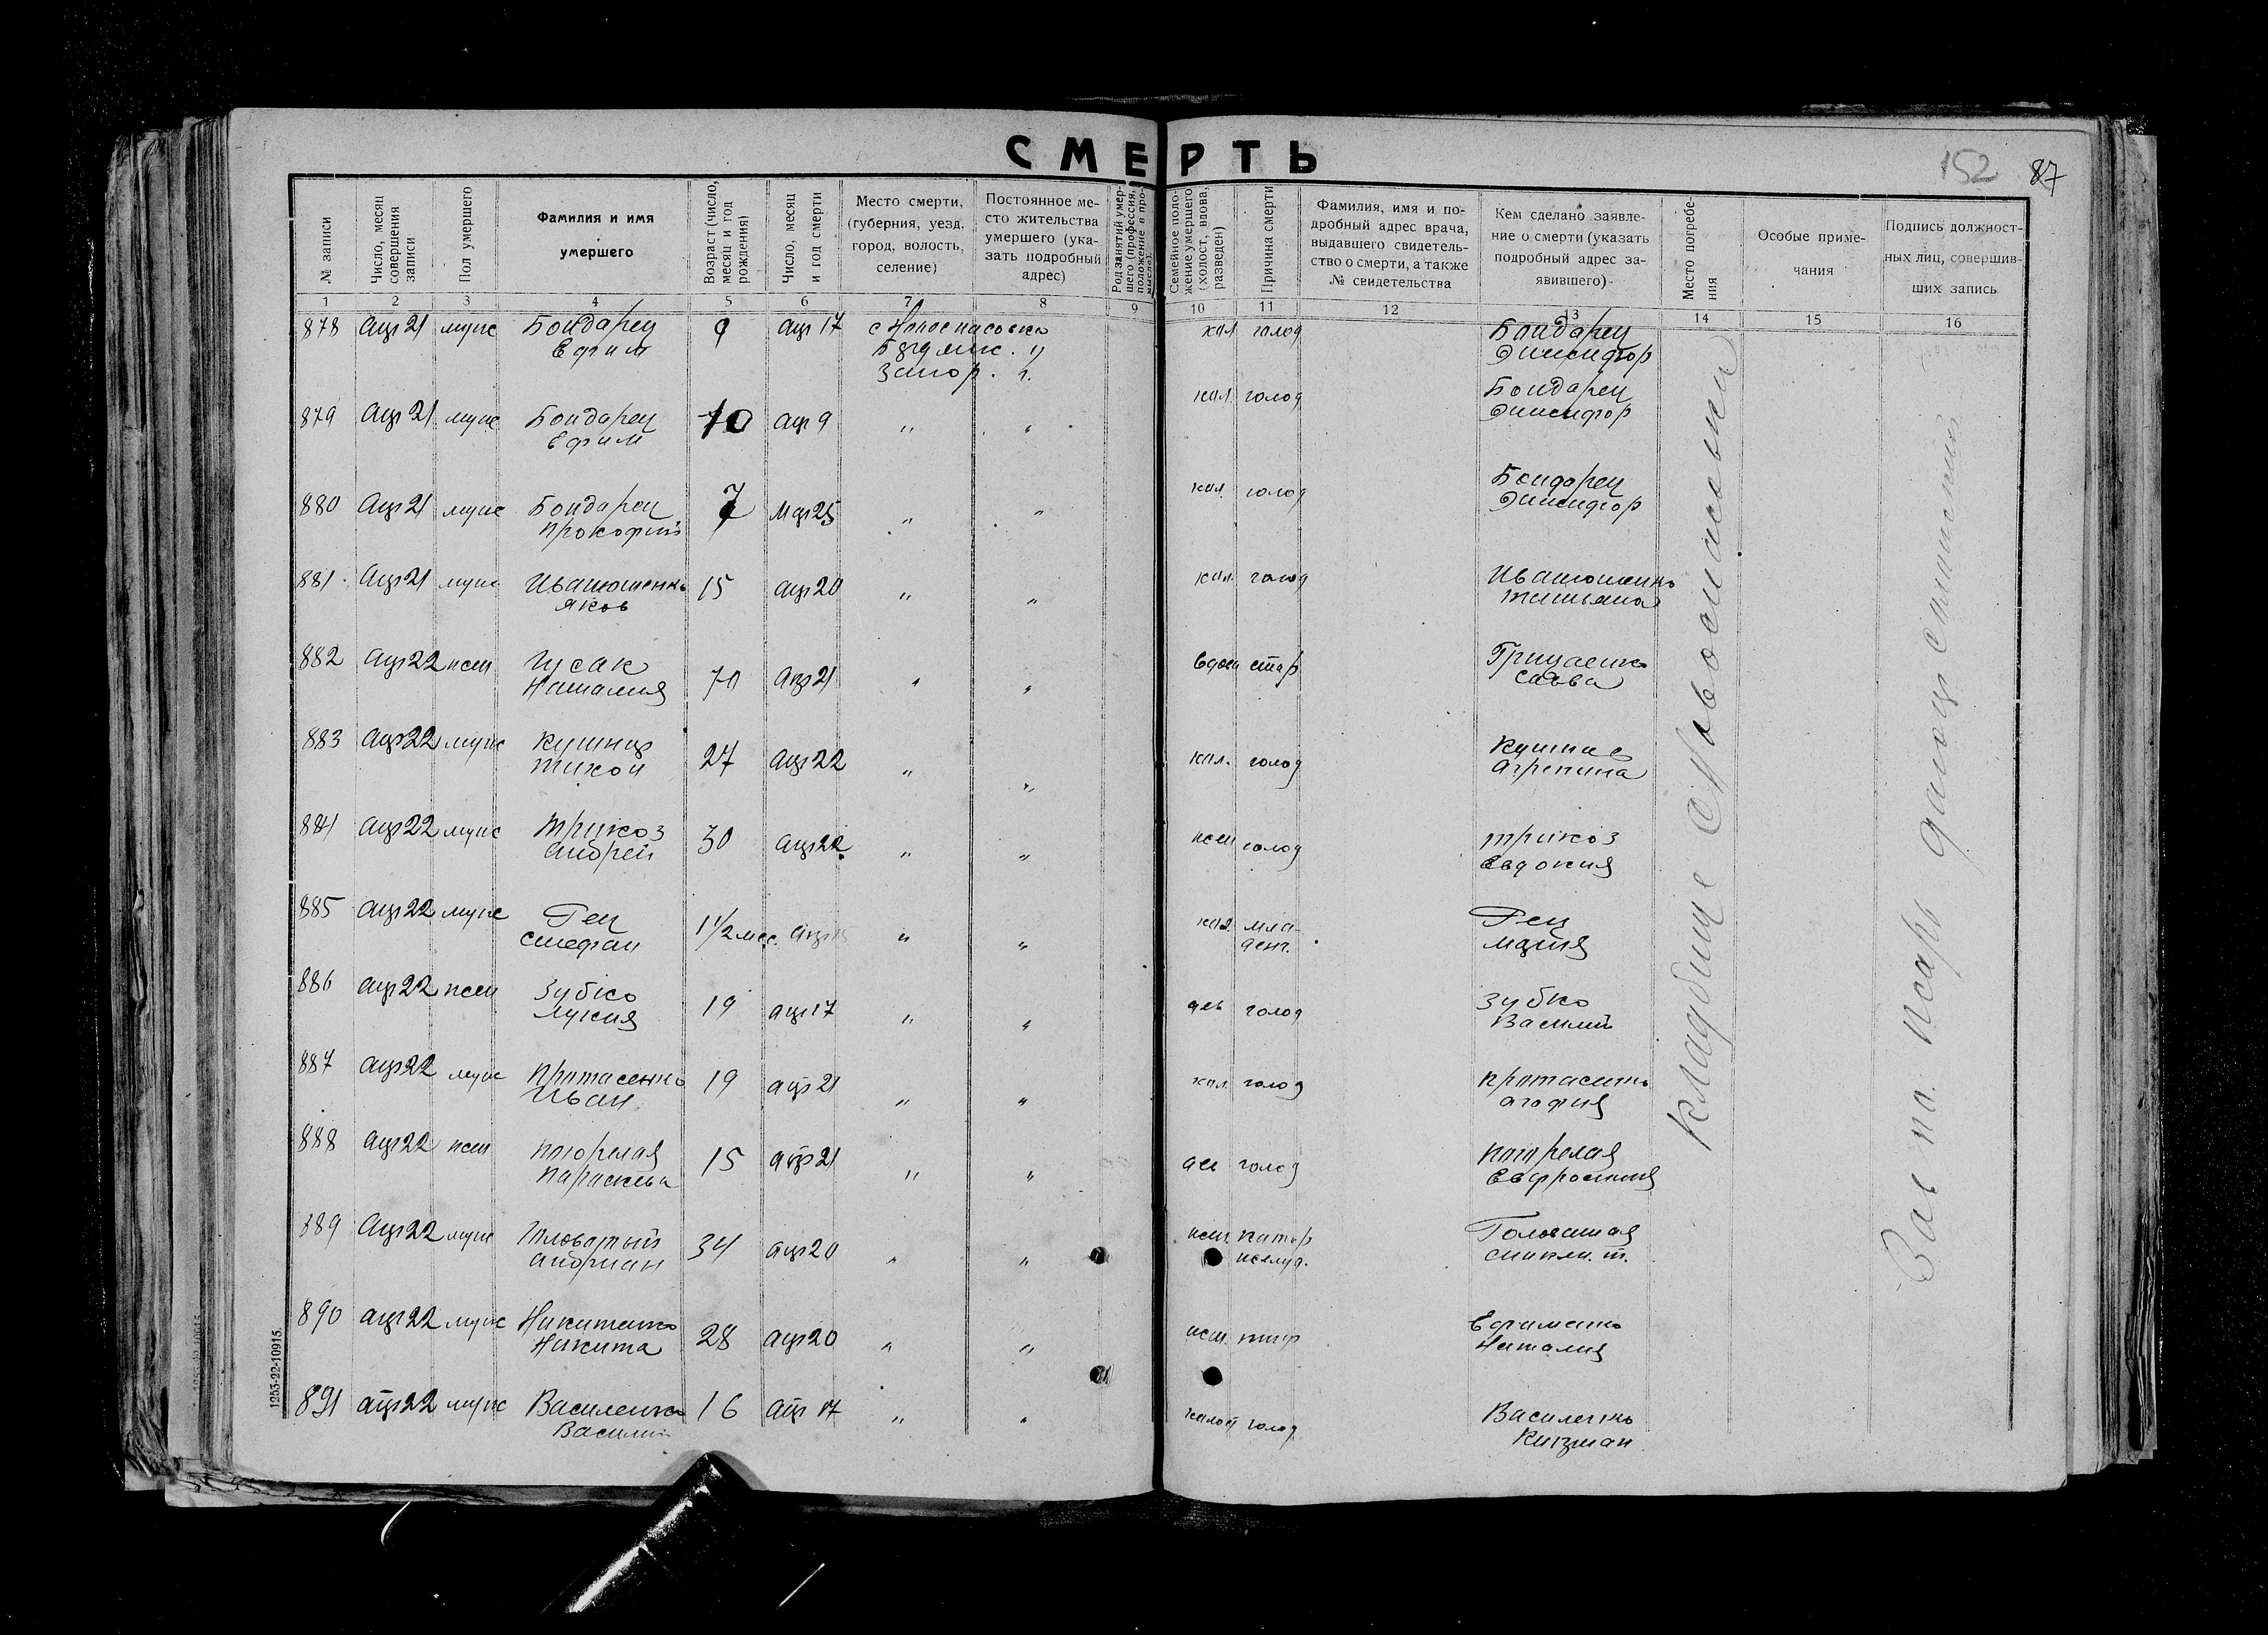 СМЕРТЬ
152 87
№ записи
Число, месяц совершения записи
Пол умершего
Фамилия и имя умершего
Возраст (число, месяц и год рождения)
Число, месяц и год смерти
Место смерти, (губерния, уезд, город, волость, селение)
Постоянное место жительства умершего (указать подробный адрес)
Род занятий умершего (профессия, положение в промысле)
Семейное положение умершего (холост, вдова, разведен)
Причина смерти
Фамилия, имя и подробный адрес врача, выдавшего свидетельство о смерти, а также № свидетельства
Кем сделано заявление о смерти (указать подробный адрес заявившего)
Место погребения
Особые примечания
Подпись должностных лиц, совершивших запись
1 2 3 4 5 6 7 8 9 10 11 12 13 14 15 16
878 Апр 21 муж Бондарец 9 Апр 17 с Новоспасовка хол голод Бондарец
Ефим
Запор. г.
879 Апр 21 муж Бондарец 10 Апр 9 " " хол. голод Бондарец
Ефим
880 Апр 21 муж Бондарец 7 Мар 25 " " хол. голод Бондарец
Прокофий
881 Апр 21 муж Иванюшенко 15 апр 20 " " хол. голод Иванюшенко
Яков Татьяна
882 Апр 22 жен Гусак 70 Апр 21 " " вдов стар Грицаенко
Наталия Савва
883 Апр 22 муж Кушнир 27 Апр 22 " " хол. голод
Тихон Агрепина
884 Апр 22 муж Трикоз 30 Апр 22 " " жен голод Трикоз
Андрей Евдокия
885 Апр 22 муж Гец 1 1/2 мес. Апр " " хол. мла- Гец
Стефан денч. Мария
886 Апр 22 жен Зубко 19 апр 17 " " дев голод Зубко
Лукия Василий
887 Апр 22 муж Протасенко 19 апр 21 " " хол. голод Протасенко
Иван Агафия
888 Апр 22 жен Погорелая 15 апр 21 " " дев голод Погорелая
Параскева Евфросиния
889 Апр 22 муж Головатый 34 апр 20 " " жен катар Головатая
Андриан желуд.
890 апр 22 муж Никитенко 28 апр 20 " " жен. тиф Ефименко
Никита Наталия
891 апр 22 муж Василенко 16 апр 17 " " холост голод Василенко
Василий
Кладбище с Новоспасовки
Зав по. Писарь
1253-22-10915.